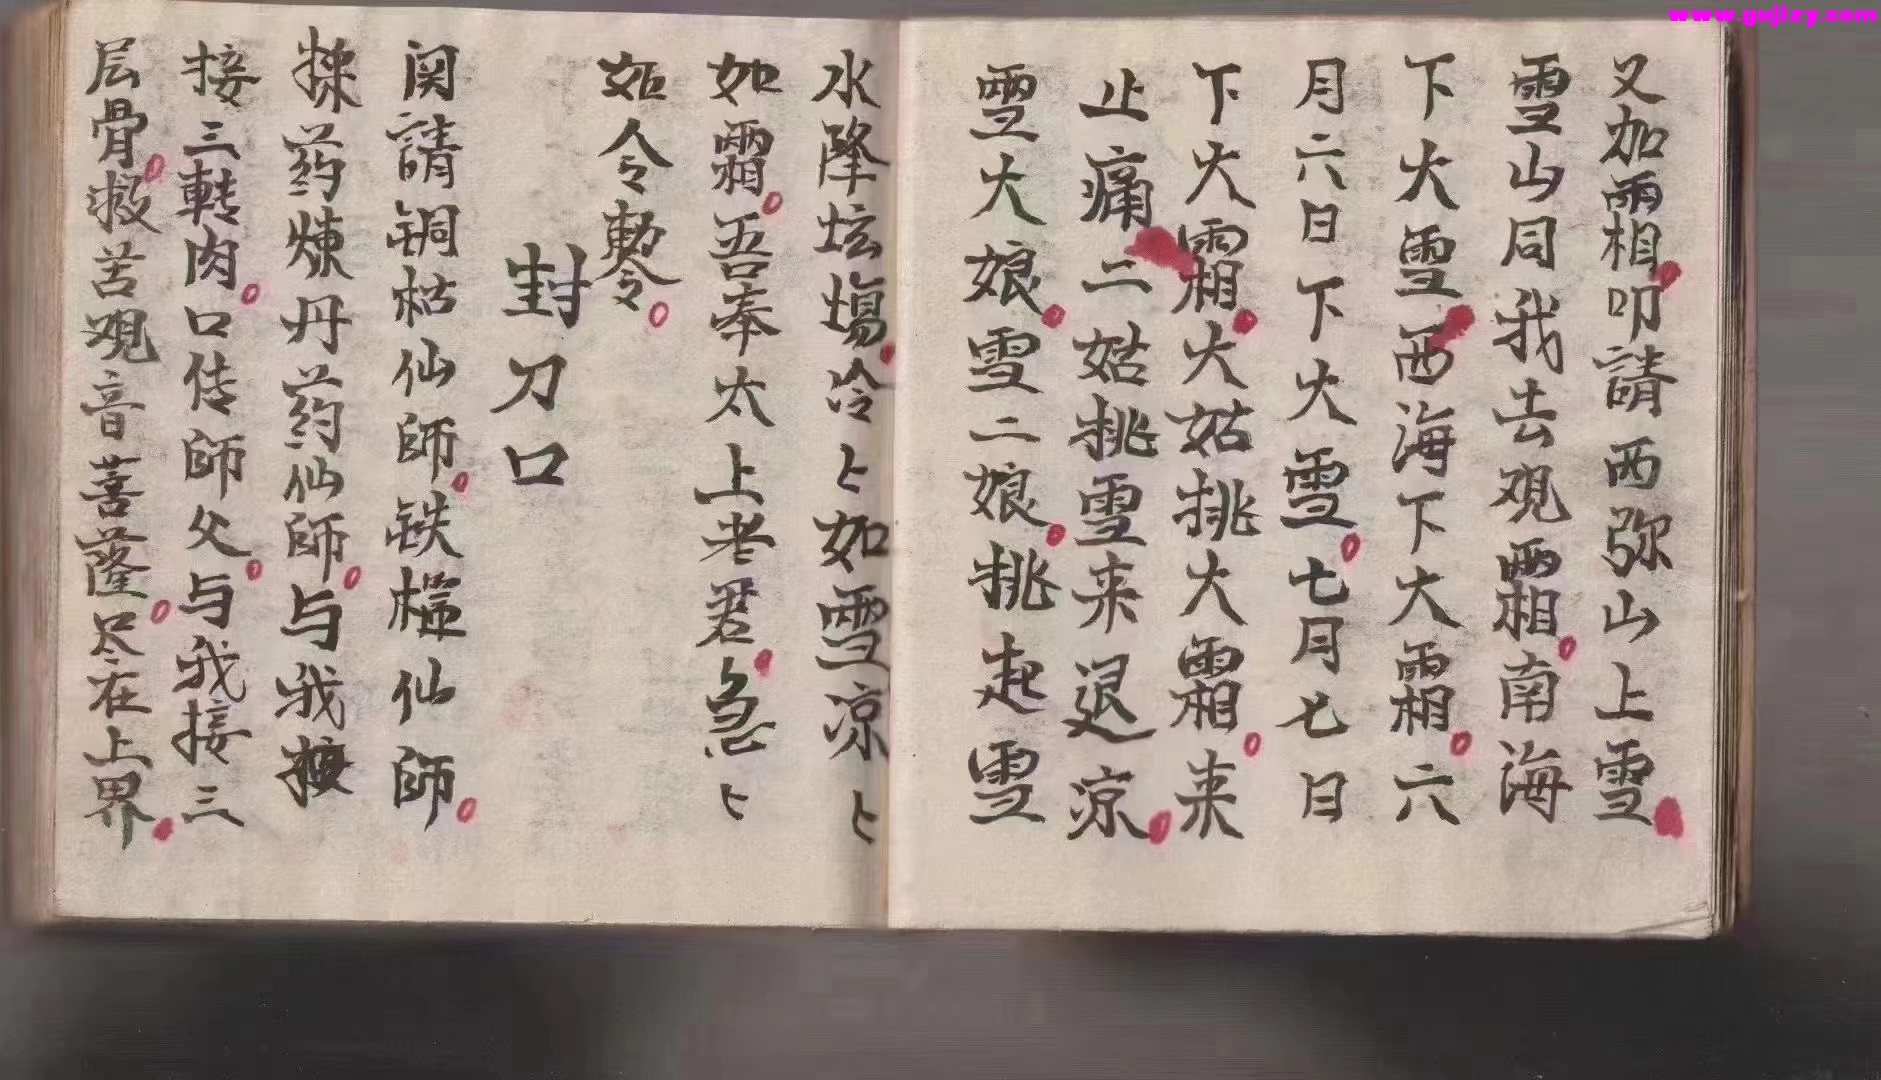 www.gujizy.com
又加霜叩請西弥山上雪
雪山同我去观霜南海
下大雪西海下大霜六
月六日下大雪七月七日
下大霜大姑挑大霜来
止痛二姑挑雪来退凉
雪大娘雪二娘挑起雪
水降坛場冷〻如雪凉〻
如霜吾奉太上老君急〻
如令敕令
封刀口
関請铜枯仙師铁仙師
揀药煉丹药仙師与我接
接三轉肉口传師父与我接三
层骨救苦观音菩薩尽在上界